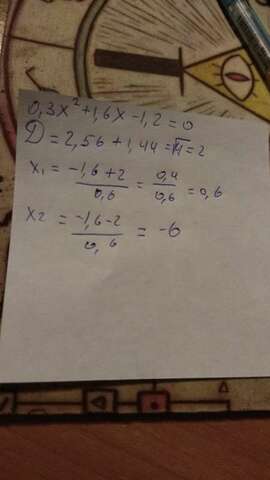 0,3x²+1,6x-1,2=0
D=2,56+1,44=√4=2
x₁ = (-1,6+2)/0,6 = 0,4/0,6 = 0,6
x₂ = (-1,6-2)/0,6 = -6